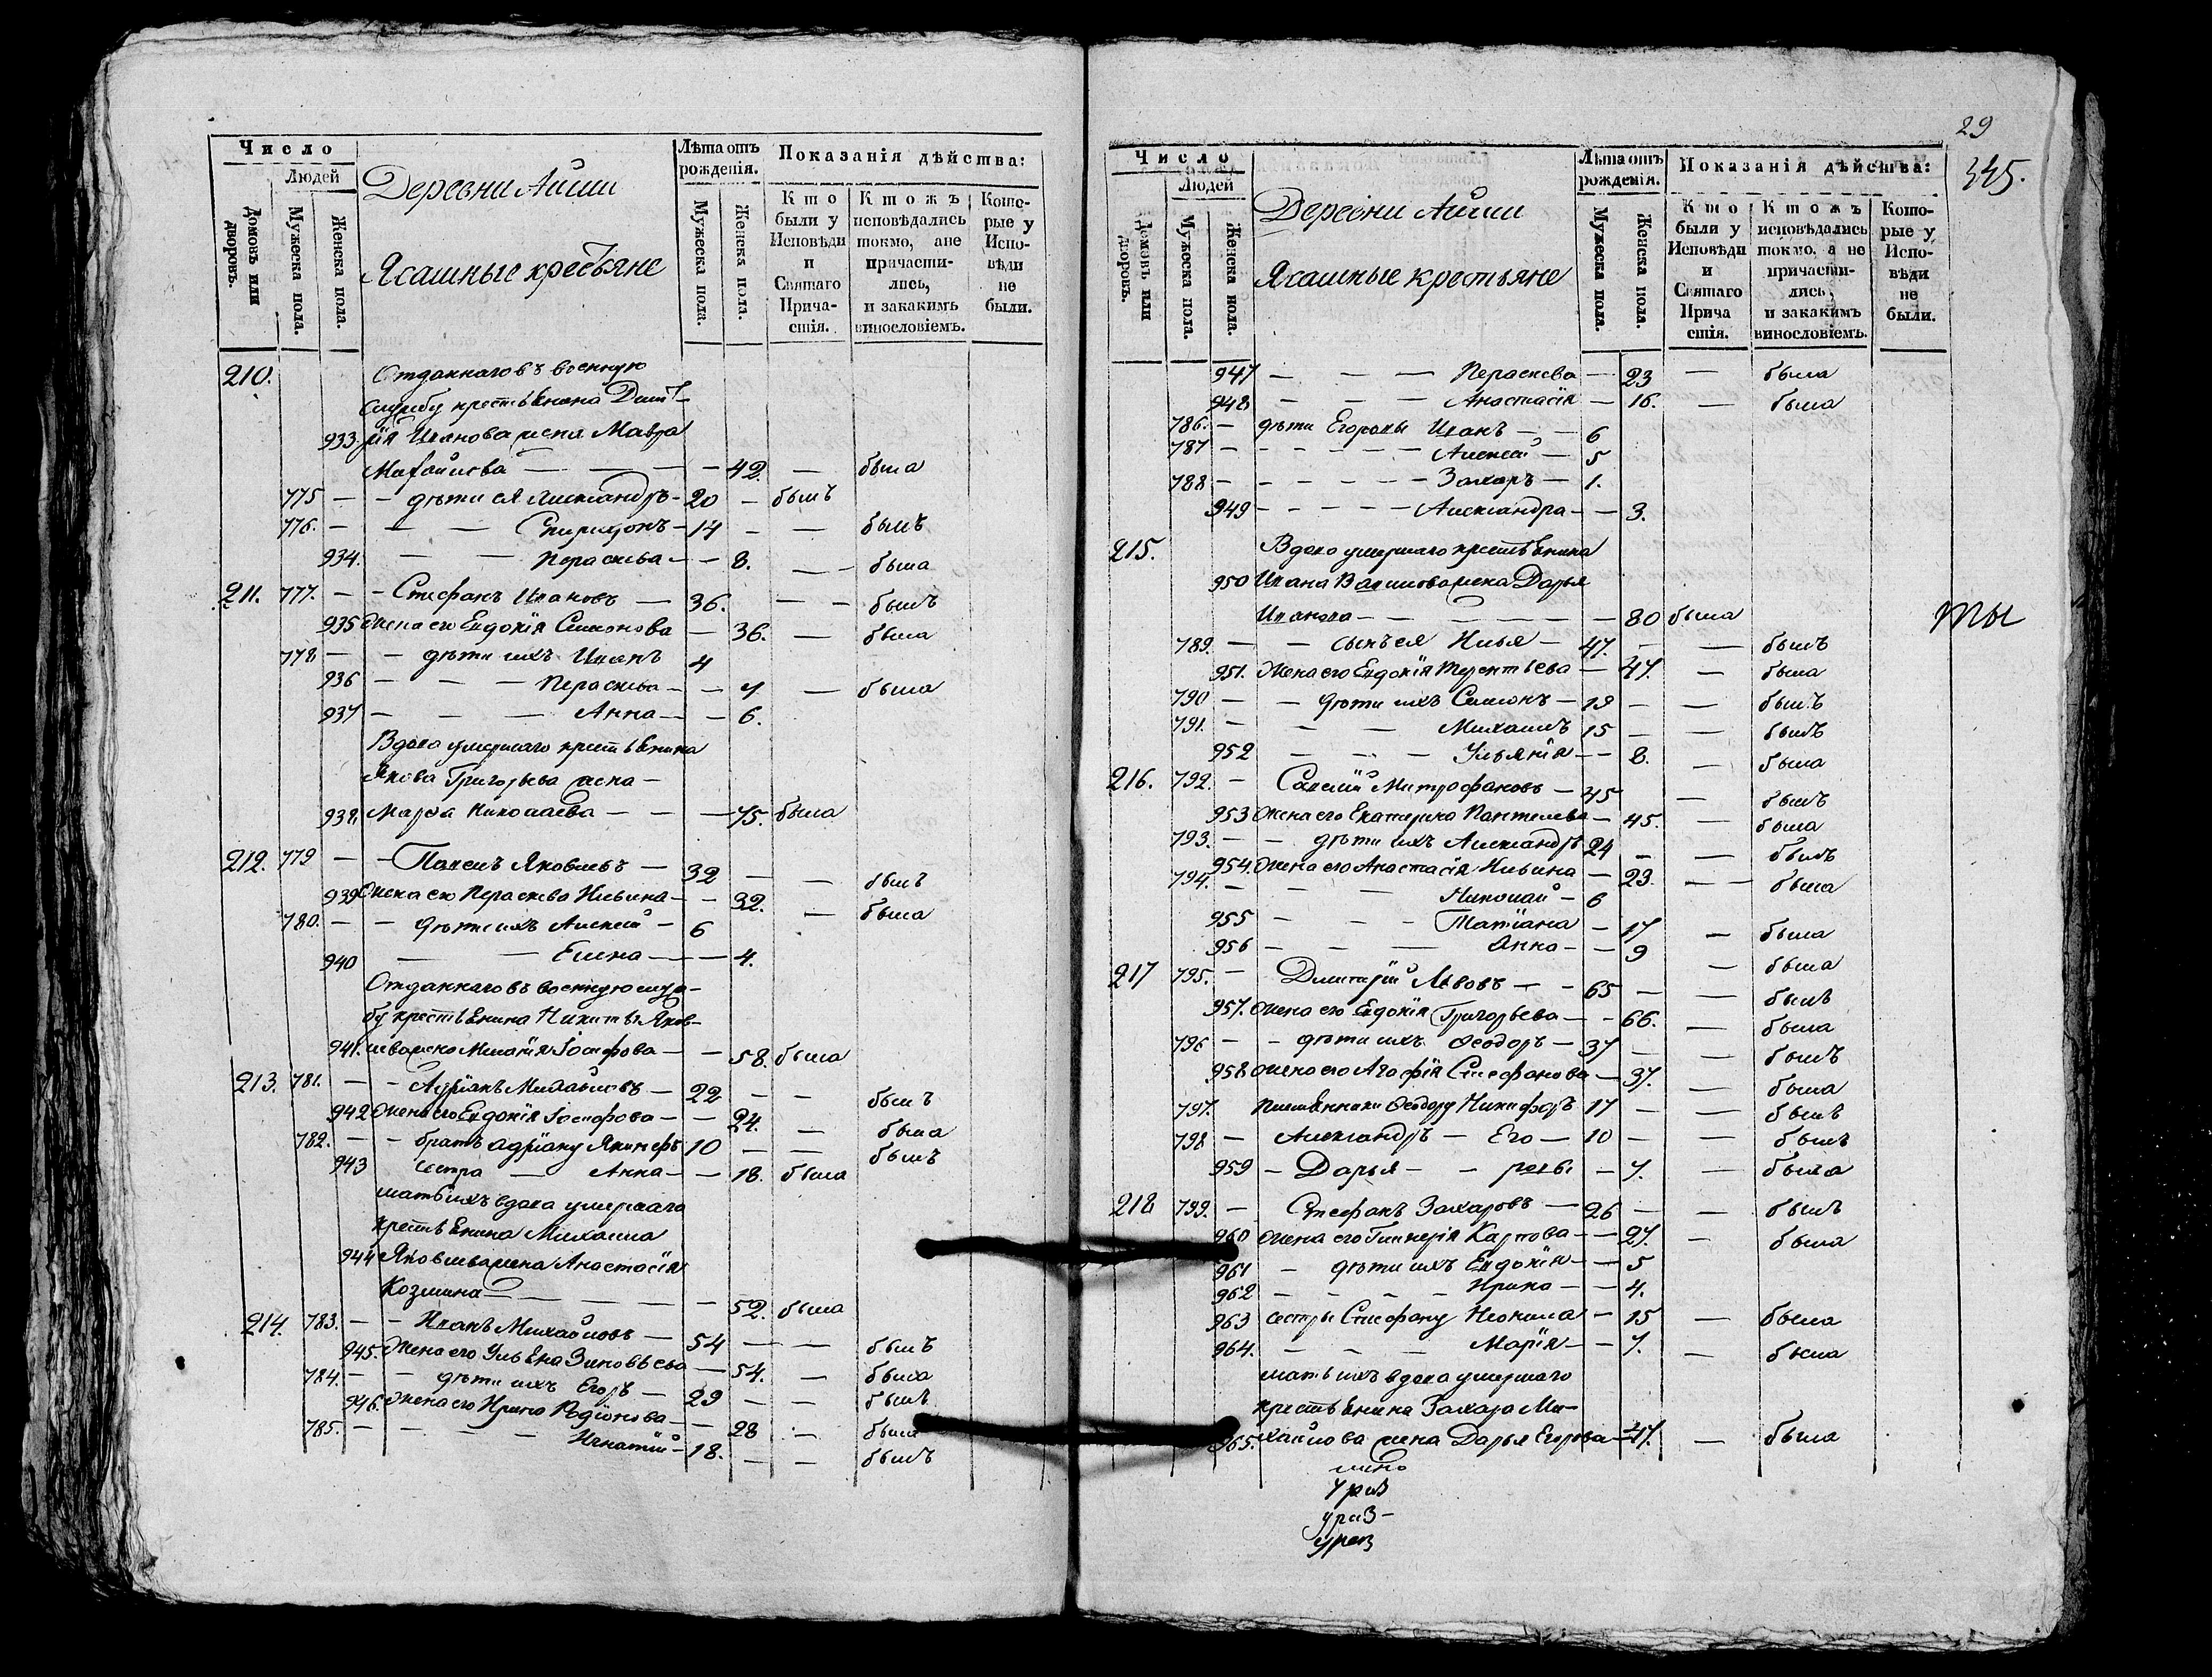 Число
Людей
Домовъ или дворовъ.
Мужеска пола.
Женска пола.
Деревни Айши
Ясашные крестьяне
Лѣта отъ рожденія.
Мужеска пола.
Женска пола.
Показанія дѣйства:
Кто были у Исповѣди и Святаго Причастія.
Ктожъ исповѣдались токмо, а не причастились, и закакимъ винословіемъ.
Которые у Исповѣди не были.
210. Отданнаго въ военную
службу крестьянина Дмит-
933. рія Иванова жена Мавра
Михайлова — — — — 42. — была
775 — — дѣти ея Александръ — 20 — былъ
776. — — — Спиридонъ — 14 — — былъ
934. — — Пераскева — — 8. — — была
211. 777. — — Стефанъ Ивановъ — 36. — — былъ
935 Жена его Евдокія Симонова — 36. — была
778 — — дѣти ихъ Иванъ 4
936 — — — Пераскева — — 7 — была
937 — — — Анна — — 6.
Вдова умершаго крестьянина
Якова Григорьева жена —
938. Марѳа Николаева — — — 75. была
212. 779 — — Павелъ Яковлевъ — 32 — — былъ
939 Жена его Пераскева Ильина — — 32. — была
780. — — дѣти ихъ Алексей — 6
940 — — Елена — — — 4.
Отданнаго въ военную служ-
бу крестьянина Никиты Яков-
941. лева жена Меланія Іосифова — — 58. была
213. 781. — — Адріанъ Михайловъ — 22 — — былъ
942 Жена его Евдокія Іосифова — — 24. — была
782. — — братъ Адріану Якинфъ 10 — — былъ
943 сестра — Анна — — 18. была
мать ихъ вдова умершаго
крестьянина Михаила
944 Яковлева жена Анастасія
Козмина — — — — — 52. была
214. 783. — — Иванъ Михайловъ — 54 — — былъ
945. Жена его Ульяна Зиновьева — 54. — была
784. — — дѣти ихъ Егоръ — 29 — — былъ
946. Жена его Ирина Родіонова — — 28 — была
785. — — — — Игнатій — 18. — — былъ
29
Число
Людей
Домовъ или дворовъ.
Мужеска пола.
Женска пола.
Деревни Айши
Ясашные крестьяне
Лѣта отъ рожденія.
Мужеска пола.
Женска пола.
Показанія дѣйства:
Кто были у Исповѣди и Святаго Причастія.
Ктожъ исповѣдались токмо, а не причастились, и закакимъ винословіемъ.
Которые у Исповѣди не были.
947 — — — Пераскева — 23 — была
948 — — — Анастасія — 16. — была
786. — дѣти Егоровы Иванъ — — 6
787 — — — — — Алексей — 5
788 — — — — — Захаръ — 1.
949 — — — — — Александра — — 3.
215. Вдова умершаго крестьянина
950 Ивана жена Дарья
Иванова — — — — — — 80 была
789. — — сынъ ея Илья — 47. — — былъ
951. Жена его Евдокія Терентьева — 47. — была
790 — — дѣти ихъ Симонъ — 19 — — былъ
791. — — — Михаилъ 15 — — былъ
952 — — — Ульянія — — 8. — была
216. 792. — Савелій Митрофановъ — 45 — былъ
953 Жена его Екатерина Пантелева — 45. — была
793. — — дѣти ихъ Александръ 24 — — былъ
954. Жена его Анастасія Ильина — 23. — — была
794. — — — Николай — 6
955 — — — Татіана — 17 — была
956 — — — Анна — — 9 — была
217 795. — Дмитрій Львовъ — — 65 — — былъ
957. Жена его Евдокія Григорьева — — 66. — была
796 — — дѣти ихъ Ѳеодоръ — 37 — — былъ
958 Жена его Агафія Стефанова — 37. — была
797. племянники Ѳеодору Никифоръ 17 — — былъ
798 — Александръ — Его — 10 — — былъ
959 — Дарья — — — 7. — была
218 799. — Стефанъ Захаровъ — 26 — — былъ
960 Жена его Гликерія Карпова — — 27. — была
961 — дѣти ихъ Евдокія — — 5
962 — — — — Ирина — — 4.
963 сестры Стефану Неонила — 15 — была
964. — — — Марія — — 7. — была
мать ихъ вдова умершаго
крестьянина Захара Ми-
965. хайлова жена Дарья Егорова — 47. — была
ты